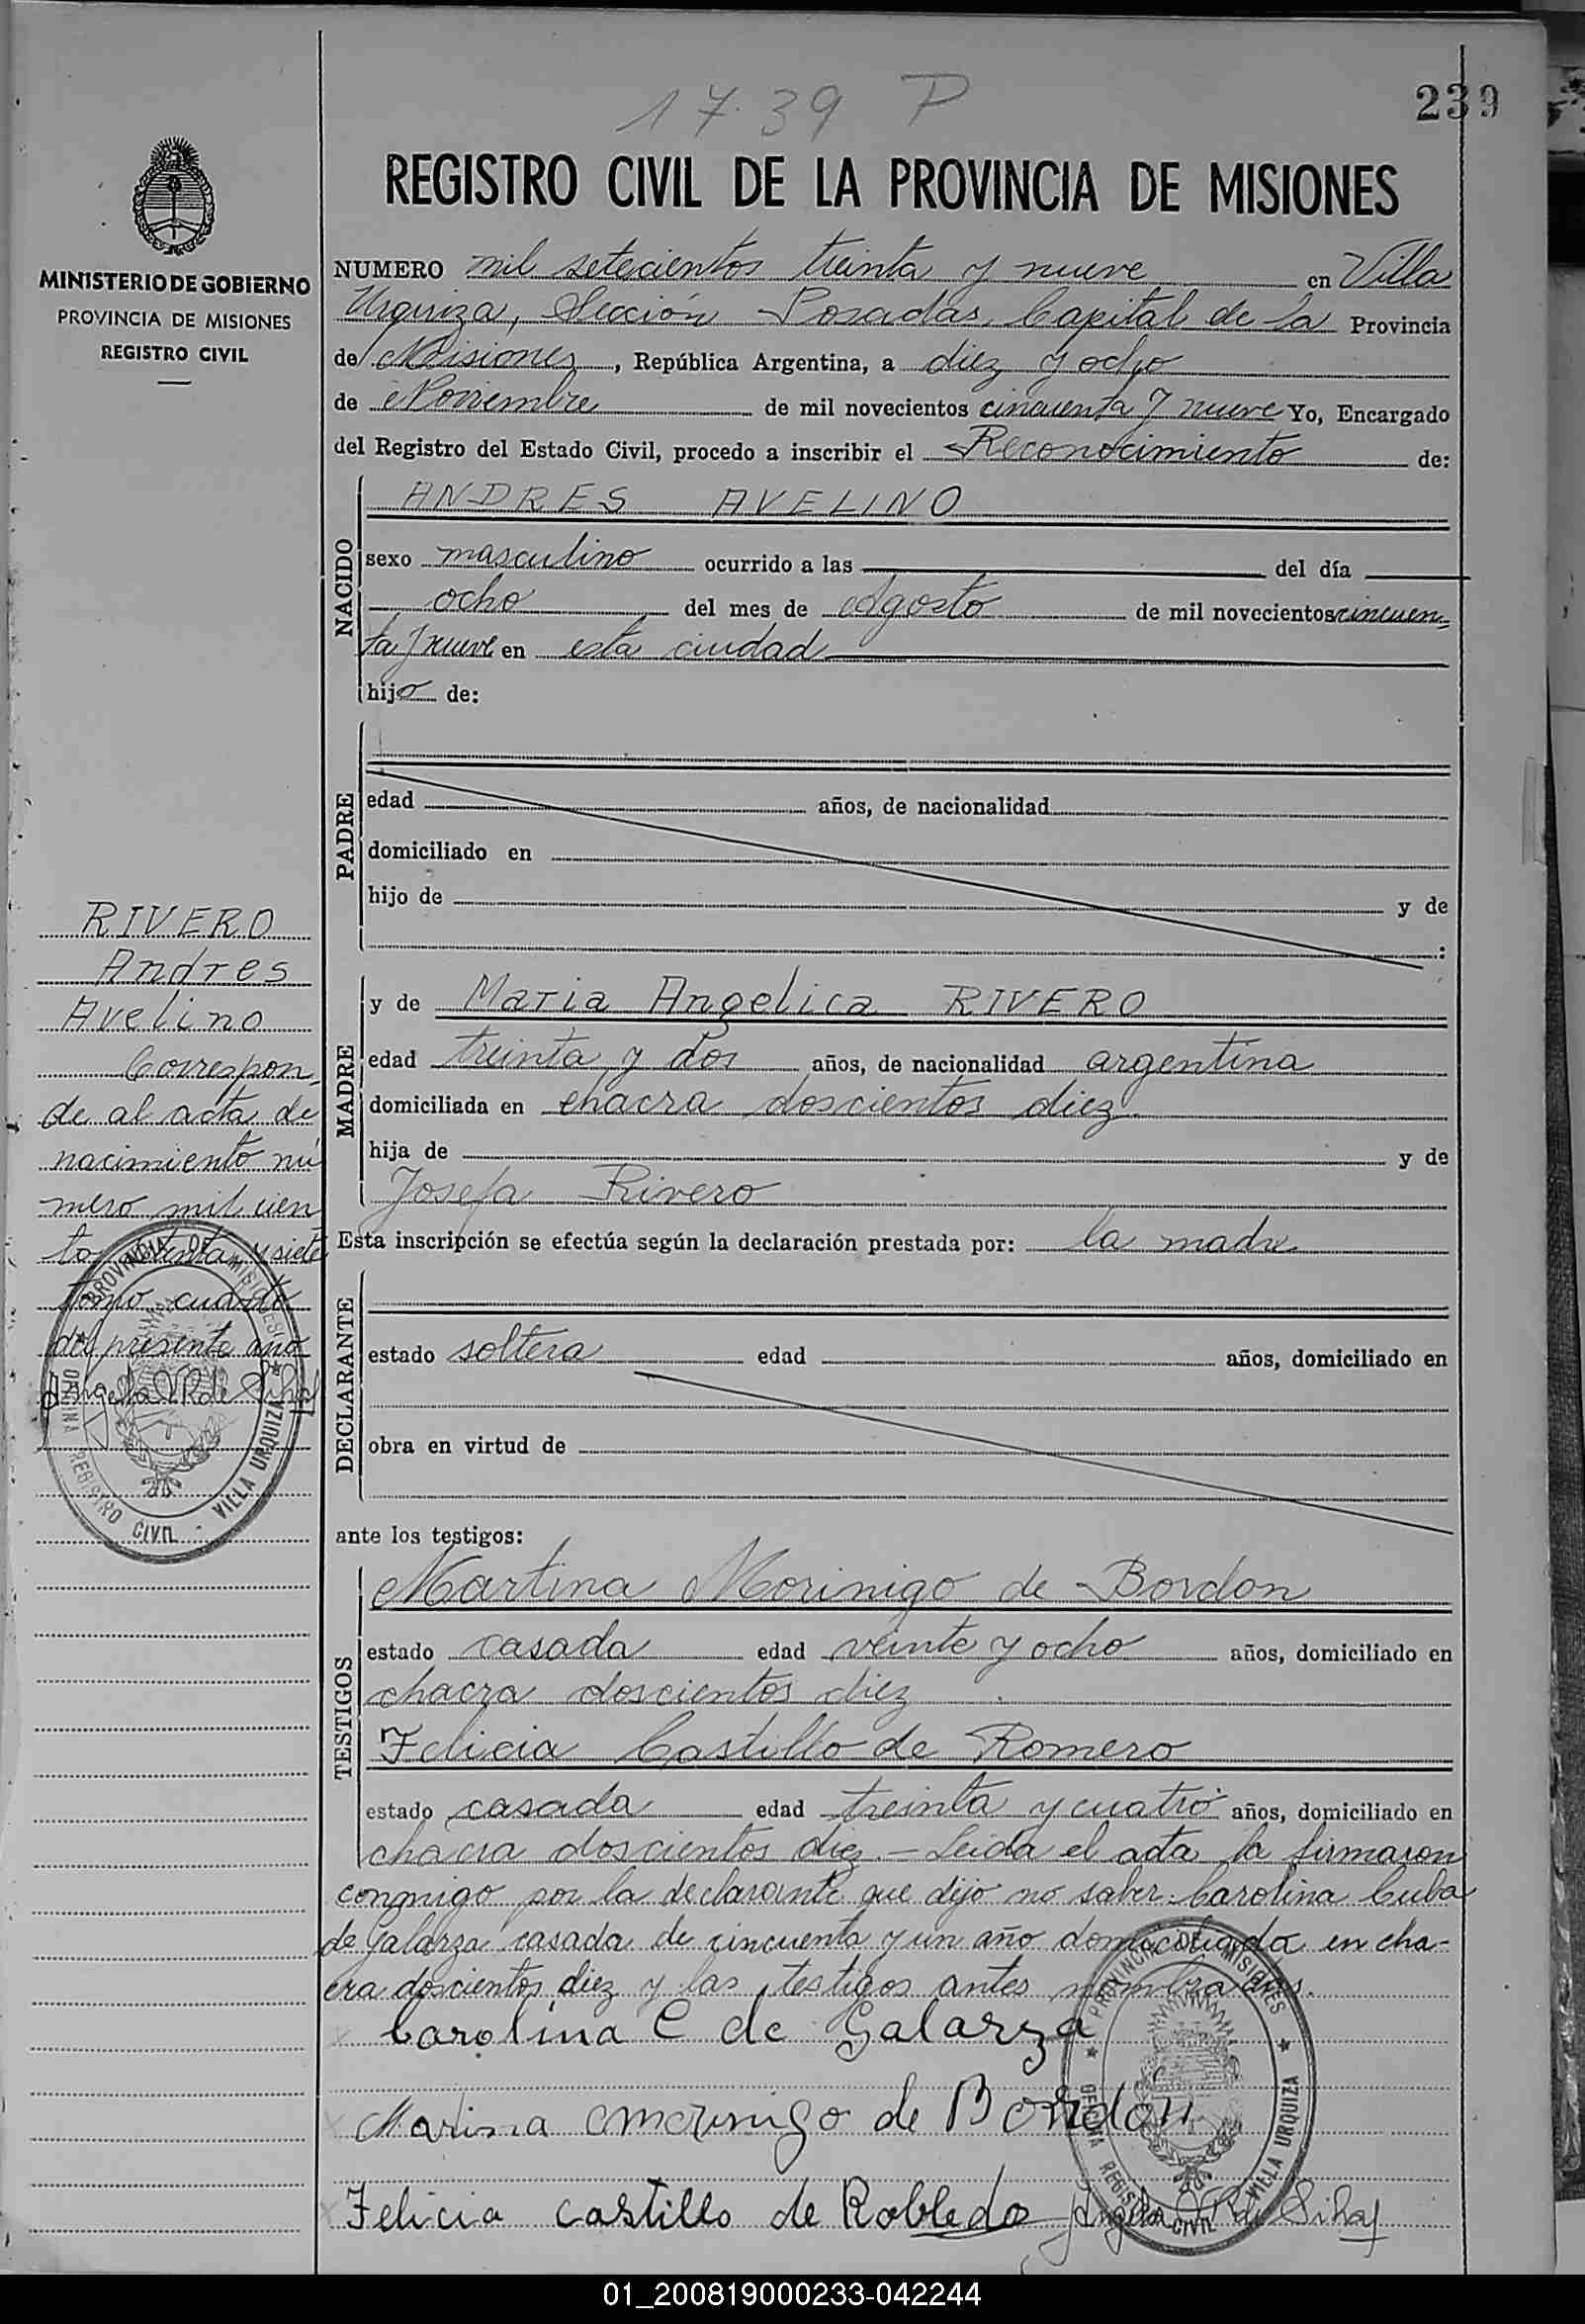 17.39 P
239
REGISTRO CIVIL DE LA PROVINCIA DE MISIONES
MINISTERIO DE GOBIERNO
PROVINCIA DE MISIONES
REGISTRO CIVIL
NUMERO mil setecientos treinta y nueve en Villa
Urquiza, Sección Posadas, Capital de la Provincia
de Misiones, República Argentina, a diez y ocho
de Noviembre de mil novecientos cincuenta y nueve Yo, Encargado
del Registro del Estado Civil, procedo a inscribir el Reconocimiento de:
NACIDO
ANDRES AVELINO
sexo masculino ocurrido a las del día
ocho del mes de Agosto de mil novecientos cincuen=
ta y nueve en esta ciudad
hijo de:
PADRE
edad años, de nacionalidad
domiciliado en
hijo de y de
:
RIVERO
Andres
Avelino
Correspon-
de al acta de
nacimiento nú
mero mil cien
to y siete
tomo cuarto
del presente año
MADRE
y de Maria Angelica RIVERO
edad treinta y dos años, de nacionalidad argentina
domiciliada en chacra doscientos diez.
hija de y de
Josefa Rivero
Esta inscripción se efectúa según la declaración prestada por: la madre
DECLARANTE
estado soltera edad años, domiciliado en
obra en virtud de
PROVINCIA DE MISIONES
OFICINA REGISTRO CIVIL - VILLA URQUIZA
ante los testigos:
TESTIGOS
Martina Morinigo de Bordon
estado casada edad veinte y ocho años, domiciliado en
chacra doscientos diez.
Felicia Castillo de Romero
estado casada edad treinta y cuatro años, domiciliado en
chacra doscientos diez.- Leida el acta la firmaron
conmigo por la declarante que dijo no saber: Carolina Cuba
de Galarza casada de cincuenta y un año domiciliada en cha-
cra doscientos diez y las testigos antes nombradas.
Carolina C de Galarza
de Bordon
Felicia Castillo de Robledo
PROVINCIA DE MISIONES
OFICINA REGISTRO CIVIL VILLA URQUIZA
01_200819000233-042244